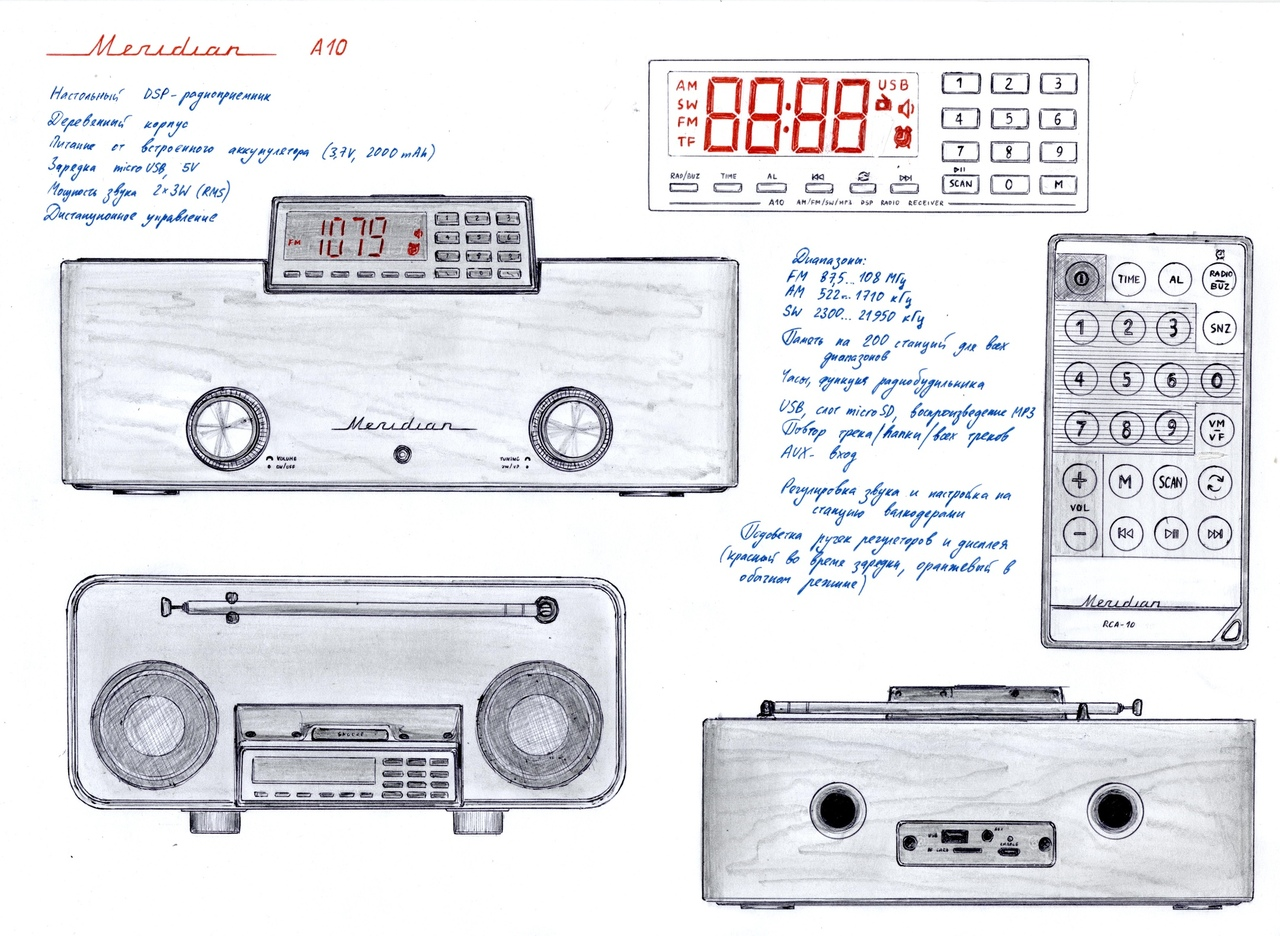 Meridian A10
Настольный DSP-радиоприемник
Деревянный корпус
Питание от встроенного аккумулятора (3,7V, 2000 mAh)
Зарядка micro USB, 5V
Мощность звука 2×3W (RMS)
Дистанционное управление
AM
SW
FM
TF
88:88
USB
1 2 3
4 5 6
7 8 9
SCAN 0 M
RAD/BUZ TIME AL
A10 AM/FM/SW/MP3 DSP RADIO RECEIVER
FM 1079
1 2 3
4 5 6
7 8 9
Meridian
VOLUME
ON/OFF
TUNING
VM/VF
Диапазоны:
FM 87,5... 108 МГц
AM 522... 1710 кГц
SW 2300... 21950 кГц
Память на 200 станций для всех
диапазонов
Часы, функция радиобудильника
USB, слот microSD, воспроизведение MP3
Повтор трека/папки/всех треков
AUX- вход
Регулировка звука и настройка на
станцию валкодерами
Подсветка ручек регуляторов и дисплея
(красный во время зарядки, оранжевый в
обычном режиме)
TIME AL RADIO BUZ
1 2 3 SNZ
4 5 6 0
7 8 9 VM VF
+ M SCAN
VOL
−
Meridian
RCA-10
USB
AUX
CHARGE
TF CARD